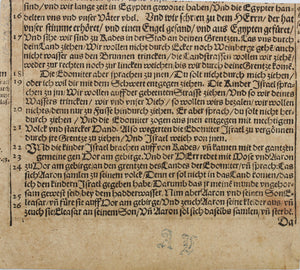 sind/ vnd wir lange zeit in Egypten gewonet haben/ Vnd die Egypter han-
16 delten vns vnd vnser Väter vbel. Vnd wir schrien zu dem HErrn/ der hat
vnser stimme erhöret/ vnd einen Engel gesand/ vnd aus Egypten gefüret/
17 Vnd sihe/ wir sind zu Kades in der Stad an deinen Grentzen. Las vns durch
dein Land ziehen/ Wir wollen nicht durch Ecker noch Weinberge gehen/ auch
nicht wasser aus den Brunnen trincken/ die Landstrasse wollen wir ziehen/
weder zur rechten noch zur lincken weichen/ bis wir durch deine Grentze komen.
18 Die Edomiter aber sprachen zu jnen/ Du solt nicht durch mich ziehen/
19 oder ich wil dir mit dem Schwert entgegen ziehen. Die Kinder Israel spra-
chen zu jm/ Wir wollen auff der gebeenten Strasse ziehen/ vnd so wir deines
Wassers trincken/ wir vnd vnser Vieh/ so wollen wirs bezalen/ wir wollen
20 nichts denn nur zu Fusse hin durch ziehen. Er aber sprach/ du solt nicht her
durch ziehen/ Vnd die Edomiter zogen aus jnen entgegen mit mechtigem
21 Volck vnd starcker Hand. Also wegerten die Edomiter Israel zu vergönnen
durch jre Grentze zu ziehen/ Vnd Israel weich von jnen.
22 Vnd die kinder Israel brachen auff von Kades/ vñ kamen mit der gantzen
23 gemeine gen Hor am gebirge. Vnd der HErr redet mit Mose vnd Aaron
24 zu Hor am gebirge an den grentzen des Landes der Edomiter/ vñ sprach/ Las
sich Aaron samlen zu seinem volck/ Denn er sol nicht in das Land komen/ das
ich den kindern Israel gegeben habe/ Darumb das jr meinē munde vngehor-
25 sam gewest seid bey dem hadderwasser. Nim aber Aaron vnd seinen Son E-
26 leasar/ vñ füre sie auff Hor am gebirge/ Vnd zeuch Aaron seine kleider aus/ vñ
zeuch sie Eleasar an seinem Son/ Vñ Aaron sol sich daselbs samlen/ vñ sterbē.
Da